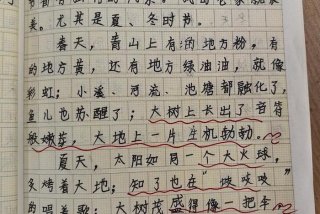 美。尤其是夏、冬时节
春天，青山上有的地方粉，有
的地方黄，还有地方绿油油，就像
彩虹；小溪、河流、池塘都融化了，
鱼儿也苏醒了；大树上长出了音符
般嫩芽，大地上一片生机勃勃。
夏天，太阳如同一个大火球，
炙烤着大地；知了也在“吱吱吱”
的唱着歌；大树茂盛得像一把